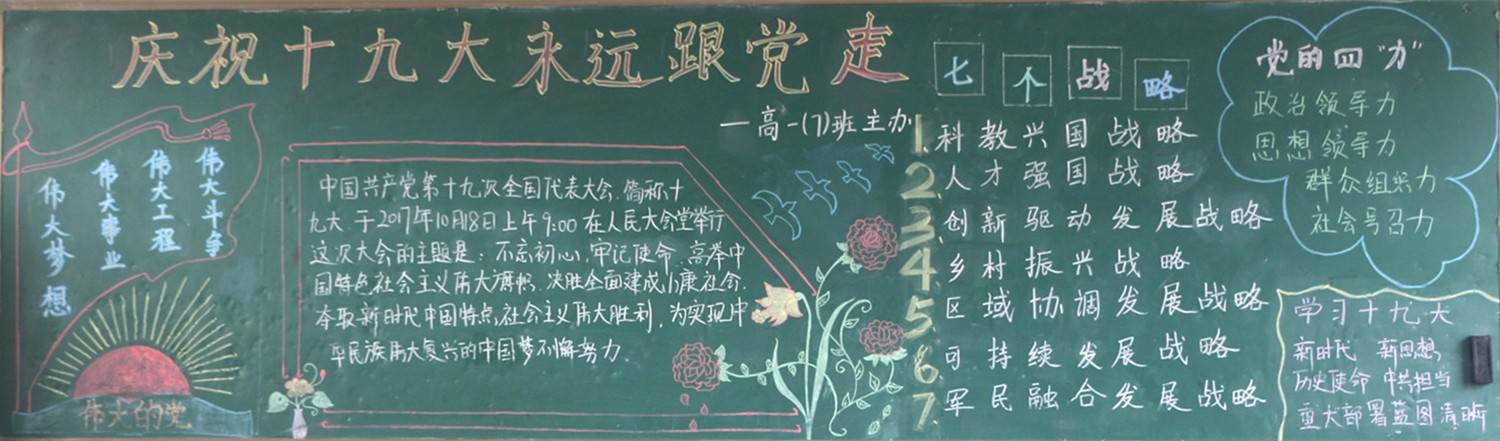 庆祝十九大永远跟党走
一高一(7)班主办
伟大斗争
伟大工程
伟大事业
伟大梦想
伟大的党
中国共产党第十九次全国代表大会,简称十
九大.于2017年10月18日上午9:00在人民大会堂举行
这次大会的主题是：不忘初心,牢记使命,高举中
国特色社会主义伟大旗帜,决胜全面建成小康社会.
夺取新时代中国特点社会主义伟大胜利,为实现中
华民族伟大复兴的中国梦不懈努力.
七个战略
1.科教兴国战略
2.人才强国战略
3.创新驱动发展战略
4.乡村振兴战略
5.区域协调发展战略
6.可持续发展战略
7.军民融合发展战略
党的四"力"
政治领导力
思想领导力
群众组织力
社会号召力
学习十九大
新时代 新思想
历史使命 中共担当
重大部署蓝图清晰